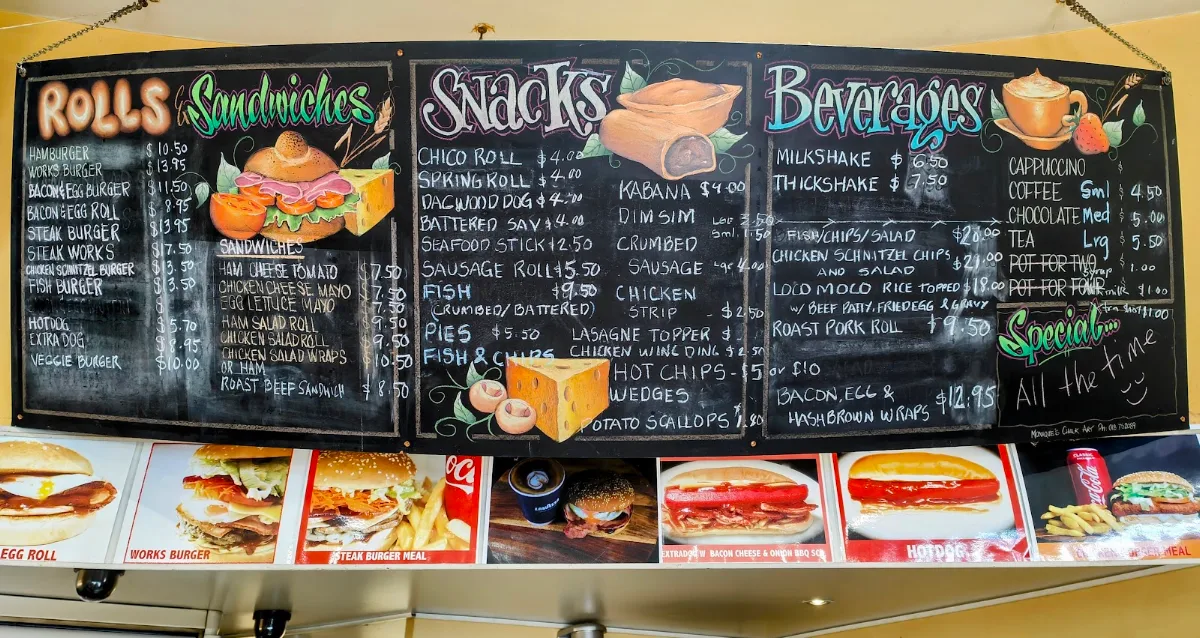 ROLLS & Sandwiches
HAMBURGER $10.50
WORKS BURGER $13.95
BACON & EGG BURGER $11.50
BACON & EGG ROLL $8.95
STEAK BURGER $13.95
STEAK WORKS $17.50
CHICKEN SCHNITZEL BURGER 3.50
FISH BURGER 3.50
HOTDOG $5.70
EXTRA DOG $8.95
VEGGIE BURGER $10.00
SANDWICHES
HAM CHEESE TOMATO $7.50
CHICKEN CHEESE MAYO 7.50
EGG LETTUCE MAYO 7.50
HAM SALAD ROLL 9.50
CHICKEN SALAD ROLL 9.50
CHICKEN SALAD WRAPS $10.50
OR HAM
ROAST BEEF SANDWICH $8.50
SNACKS
CHICO ROLL $4.00
SPRING ROLL $4.00
DAGWOOD DOG $4.00
BATTERED SAV $4.00
SEAFOOD STICK $2.50
SAUSAGE ROLL $5.50
FISH $9.50
(CRUMBED/BATTERED)
PIES $5.50
FISH & CHIPS
KABANA $4.00
DIM SIM
CRUMBED
SAUSAGE 4.00
CHICKEN
STRIP $2.50
LASAGNE TOPPER $
CHICKEN WING DING $2.50
HOT CHIPS - $5 or $10
WEDGES
POTATO SCALLOPS 1.80
Beverages
MILKSHAKE $6.50
THICKSHAKE $7.50
FISH/CHIPS/SALAD
CHICKEN SCHNITZEL CHIPS
AND SALAD
LOCO MOCO RICE TOPPED $18.00
W/ BEEF PATTY, FRIED EGG & GRAVY
ROAST PORK ROLL $9.50
BACON, EGG &
HASHBROWN WRAPS $12.95
CAPPUCCINO $
COFFEE Sml $4.50
CHOCOLATE Med $5.00
TEA Lrg $5.50
POT FOR TWO Syrup $1.00
POT FOR FOUR 1.00
$1.00
Special...
All the time
MONIQUE'S CHALK ART PH:
EGG ROLL
WORKS BURGER
STEAK BURGER MEAL
EXTRADOG W BACON CHEESE & ONION BBQ
HOTDOG
CLASSIC
Coca-Cola
MEAL